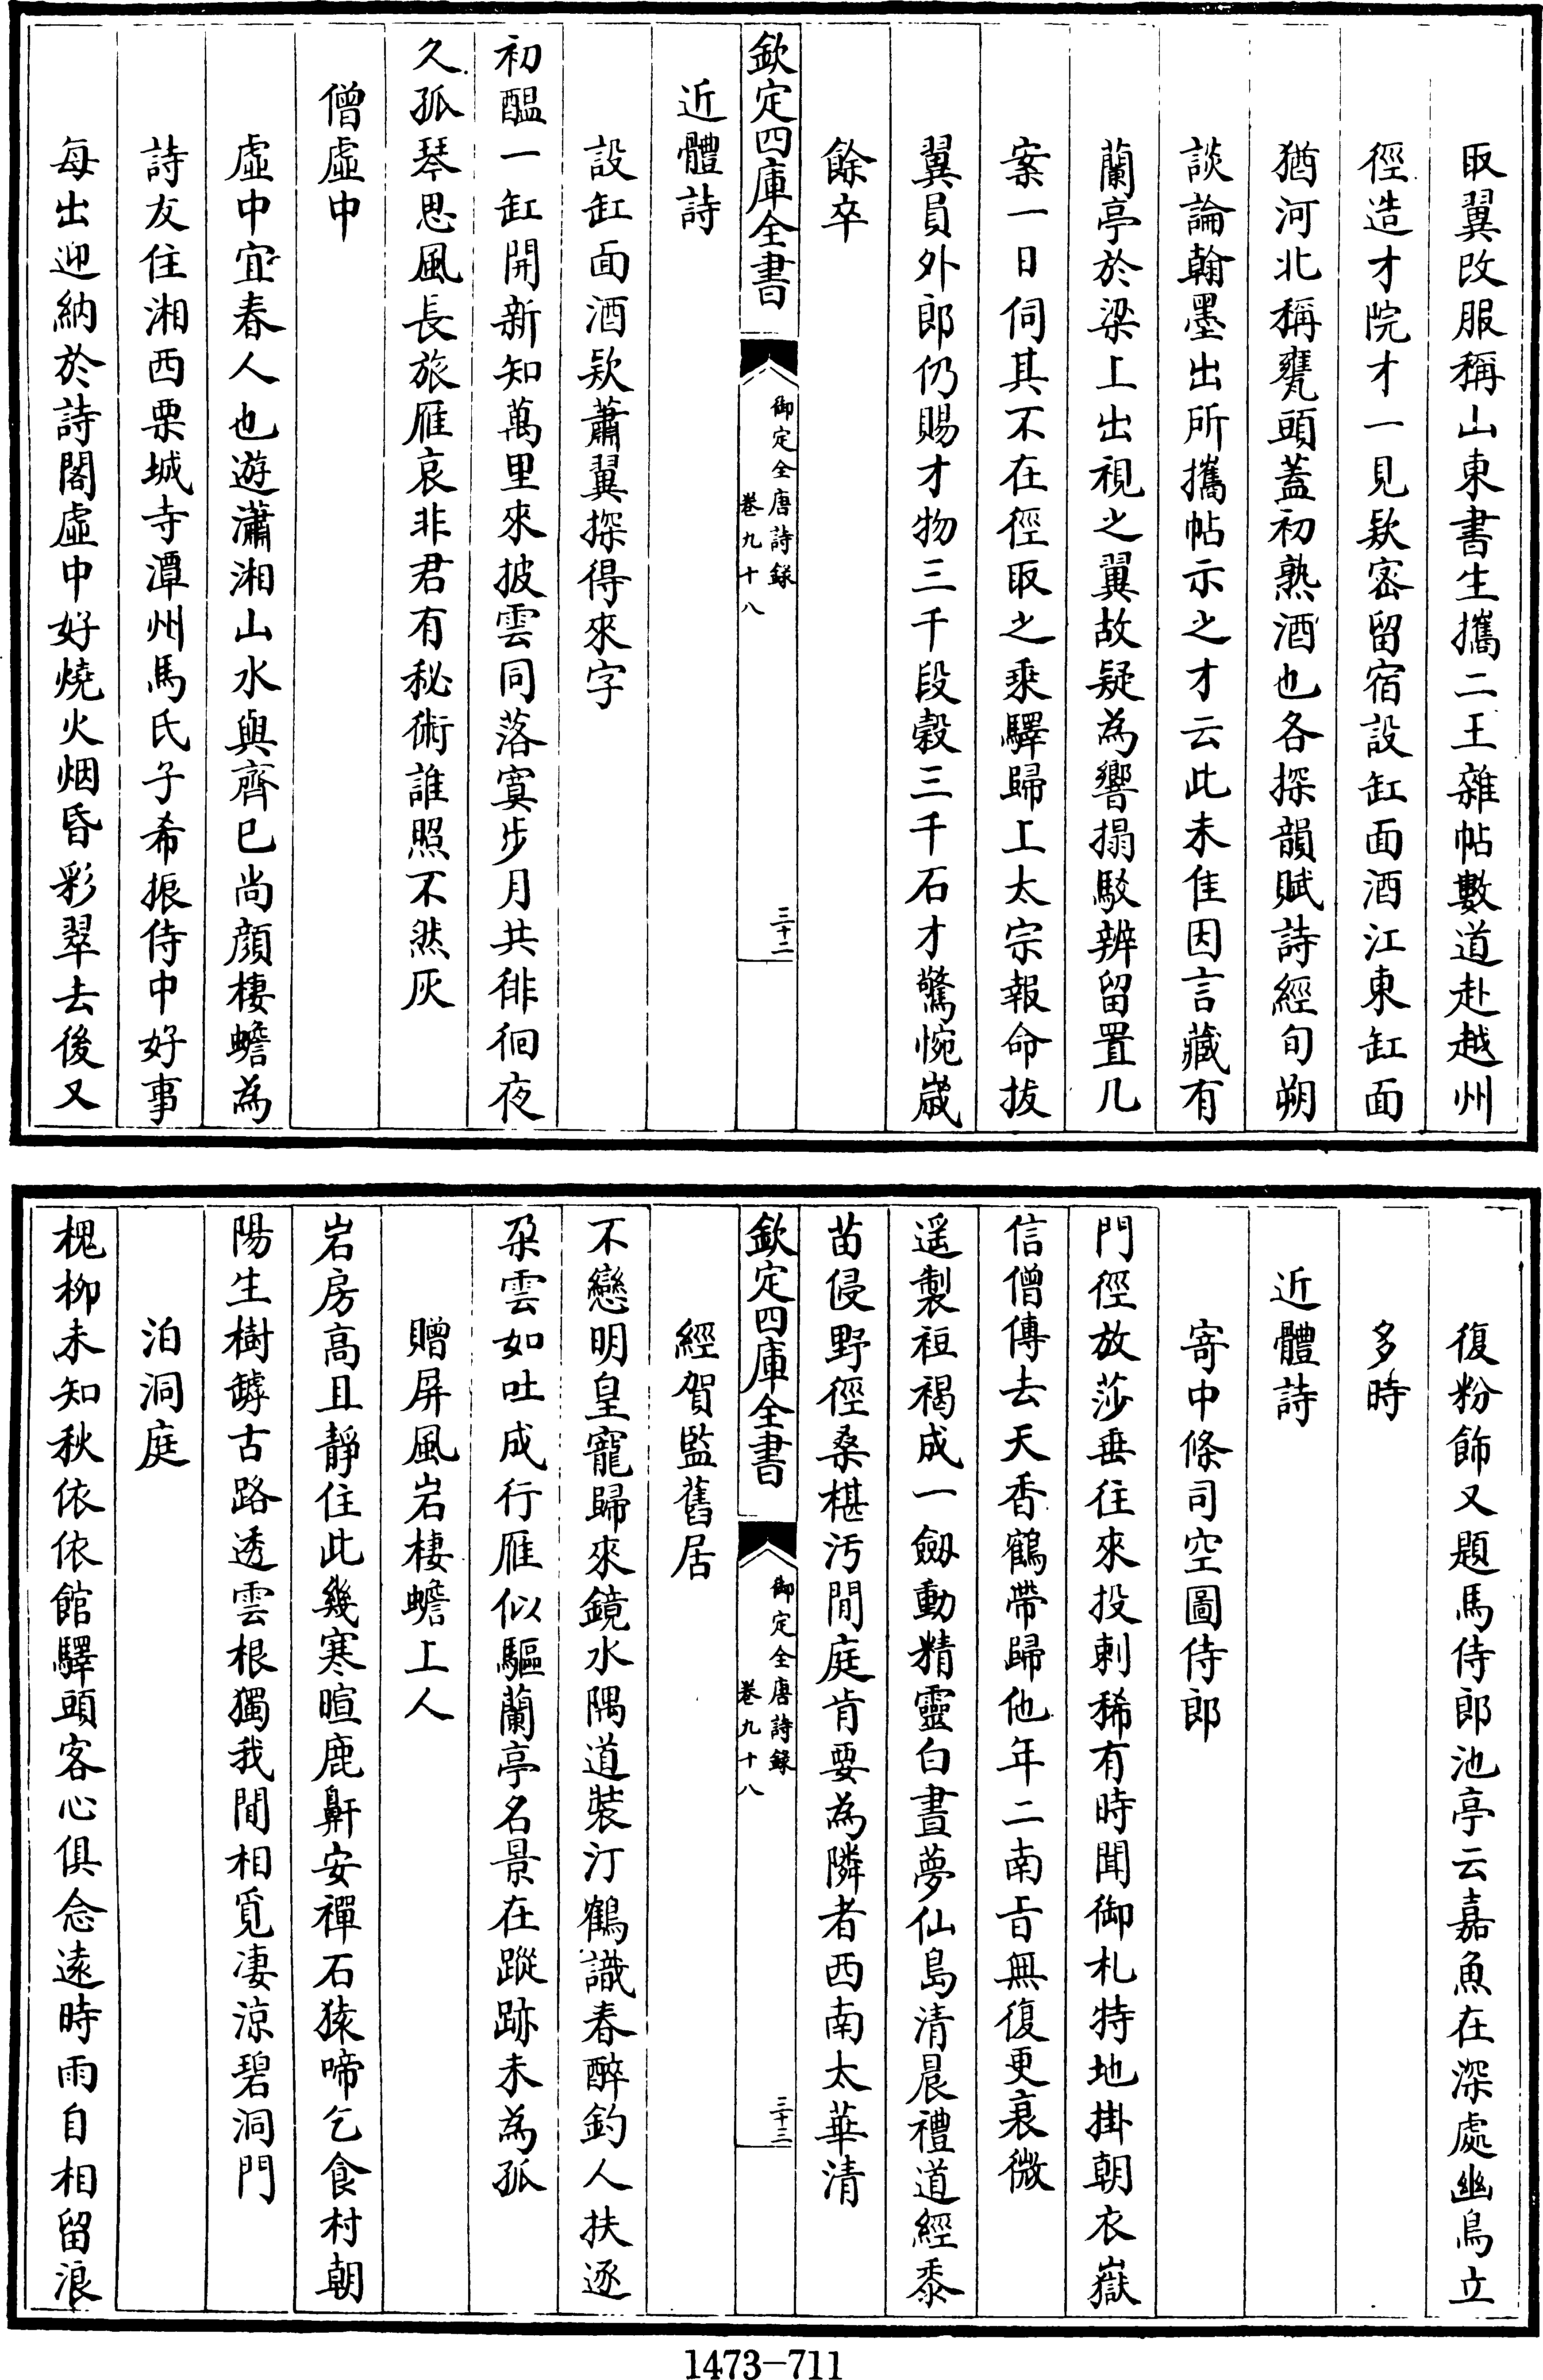 取翼改服稱山東書生攜二王雜帖數道赴越州
徑造才院才一見欵密留宿設缸面酒江東缸面
猶河北稱甕頭蓋初熟酒也各探韻賦詩經旬朔
談論翰墨出所攜帖示之才云此未佳因言藏有
蘭亭於梁上出視之翼故疑為響搨駮辨留置几
案一日伺其不在徑取之乘驛歸上太宗報命拔
翼員外郎仍賜才物三千段穀三千石才驚惋歲
餘卒
欽定四庫全書
御定全唐詩録
卷九十八
三十二
近體詩
設缸面酒欵蕭翼探得來字
初醖一缸開新知萬里來披雲同落寞步月共徘徊夜
久孤琴思風長旅雁哀非君有秘術誰照不然灰
僧虛中
虛中宜春人也遊瀟湘山水與齊巳尚顔棲蟾為
詩友住湘西栗城寺潭州馬氏子希振侍中好事
每出迎納於詩閣虛中好燒火烟昏彩翠去後又
復粉飾又題馬侍郎池亭云嘉魚在深處幽鳥立
多時
近體詩
寄中條司空圖侍郎
門徑放莎垂往來投刺稀有時聞御札特地掛朝衣嶽
信僧傳去天香鶴帶歸他年二南旨無復更衰微
遥製裋褐成一劔動精靈白晝夢仙島清晨禮道經黍
苗侵野徑桑椹汚閒庭肯要為隣者西南太華清
欽定四庫全書
御定全唐詩録
卷九十八
三十三
經賀監舊居
不戀明皇寵歸來鏡水隅道裝汀鶴識春醉釣人扶逐
朶雲如吐成行雁似驅蘭亭名景在蹤跡未為孤
贈屏風岩棲蟾上人
岩房高且靜住此幾寒暄鹿鼾安禪石猿啼乞食村朝
陽生樹罅古路透雲根獨我閒相覓凄涼碧洞門
泊洞庭
槐柳未知秋依依館驛頭客心俱念遠時雨自相留浪
1473-711